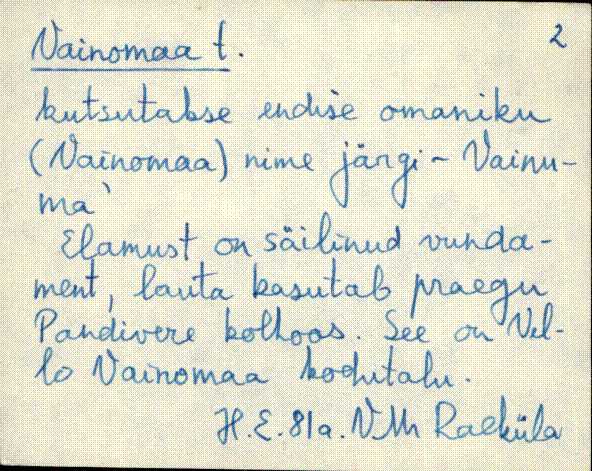 Vainomaa t. 2
kutsutakse endise omaniku
(Vainomaa) nime järgi - Vainu-
ma`
Elamust on säilinud vunda-
ment, lauta kasutab praegu
Pandivere kolhoos. See on Vel-
lo Vainomaa kodutalu.
H.E. 81a. VMr Raeküla